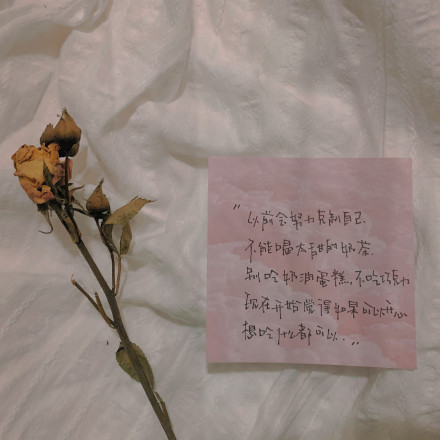 “以前会努力克制自己
不能喝太甜的奶茶
别吃奶油蛋糕,不吃巧克力
现在开始觉得如果可以开心
想吃什么都可以..”